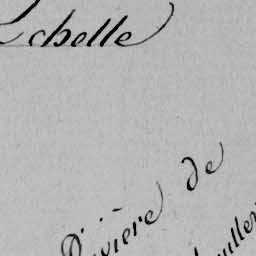 Echelle
Rivière de